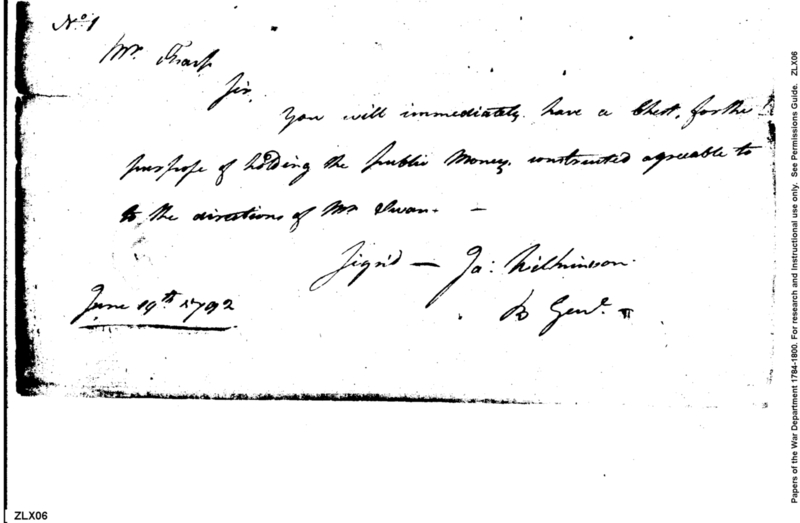 No. 1
Mr. Tharp
Sir,
You will immediately have a Chest, for the
purpose of holding the public Money, constructed agreeable to
to the directions of Mr Swan. —
Sign'd — Ja: Wilkinson.
B Genl.
June 19th 1792
Papers of the War Department 1784-1800. For research and instructional use only. See Permissions Guide. ZLX06
ZLX06